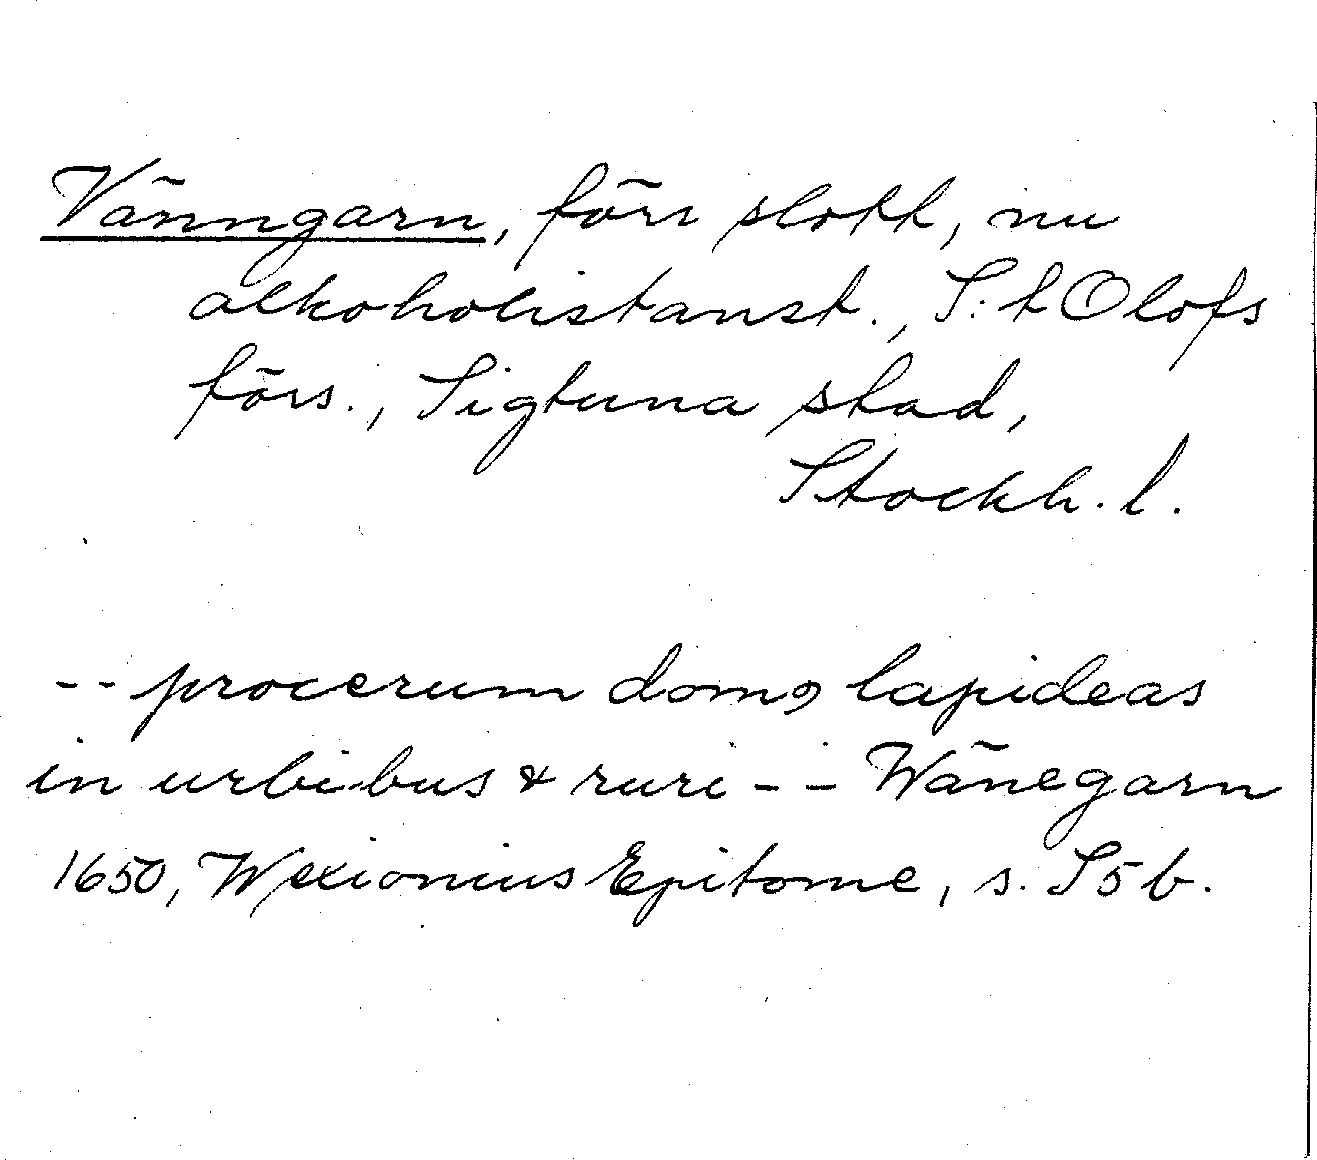 Vänngarn, förr slott, nu
alkoholistanst., S:t Olofs
förs., Sigtuna stad,
Stockh. l.
-- procerum domꝰ lapideas
in urbibus & ruri -- Wänegarn
1650, Wexionius Epitome, s. S5b.